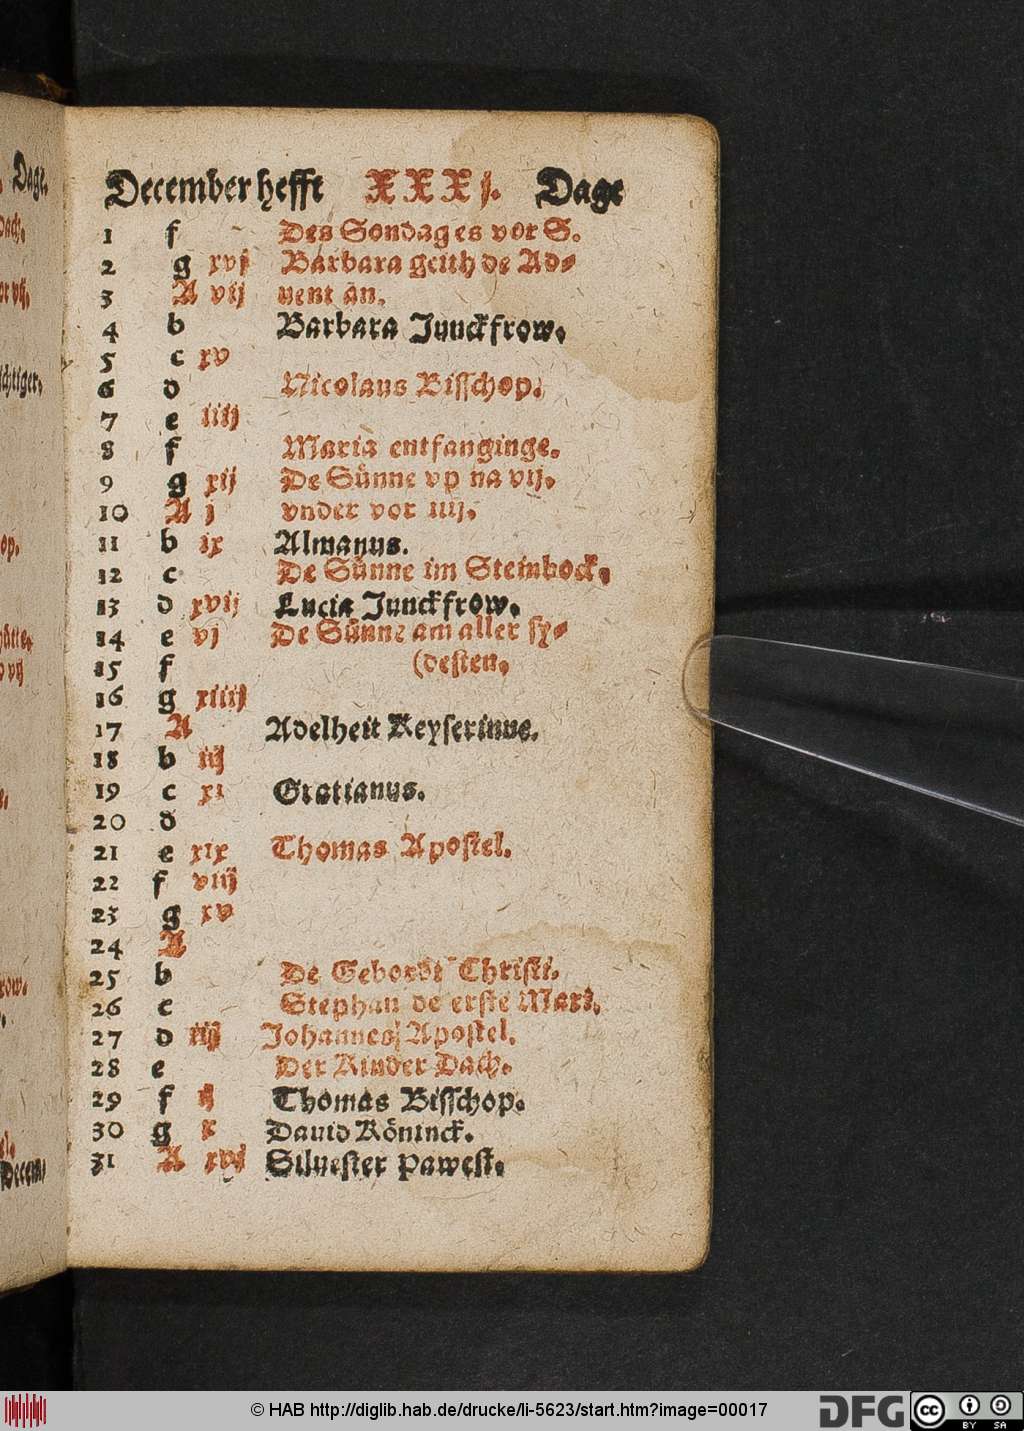 December hefft XXXj. Dage
1 f Des Sondages vor S.
2 g xvij Barbara geith de Ad-
3 A vij vent an.
4 b Barbara Junckfrow.
5 c xv
6 d Nicolaus Bisschop.
7 e iiij
8 f Maria entfanginge.
9 g xij De Sünne vp na vij.
10 A j vnder vor iiij.
11 b ix Almanus.
12 c De Sünne im Steinbock.
13 d xvij Lucia Junckfrow.
14 e vj De Sünne am aller sy-
15 f (desten.
16 g xiiij
17 A Adelheit Keyserinne.
18 b iij
19 c xi Gratianus.
20 d
21 e xix Thomas Apostel.
22 f viij
23 g xv
24 A
25 b De Gebordt Christi.
26 c Stephan de erste Mart.
27 d iiij Johannes Apostel.
28 e Der Kinder Dach.
29 f ij Thomas Bisschop.
30 g x Dauid Köninck.
31 A xvj Siluester Pawest.
Dage.
Dach.
vor vij.
chtiger.
op.
hütte.
vij
row.
Decem,
© HAB http://diglib.hab.de/drucke/li-5623/start.htm?image=00017
DFG
cc BY SA